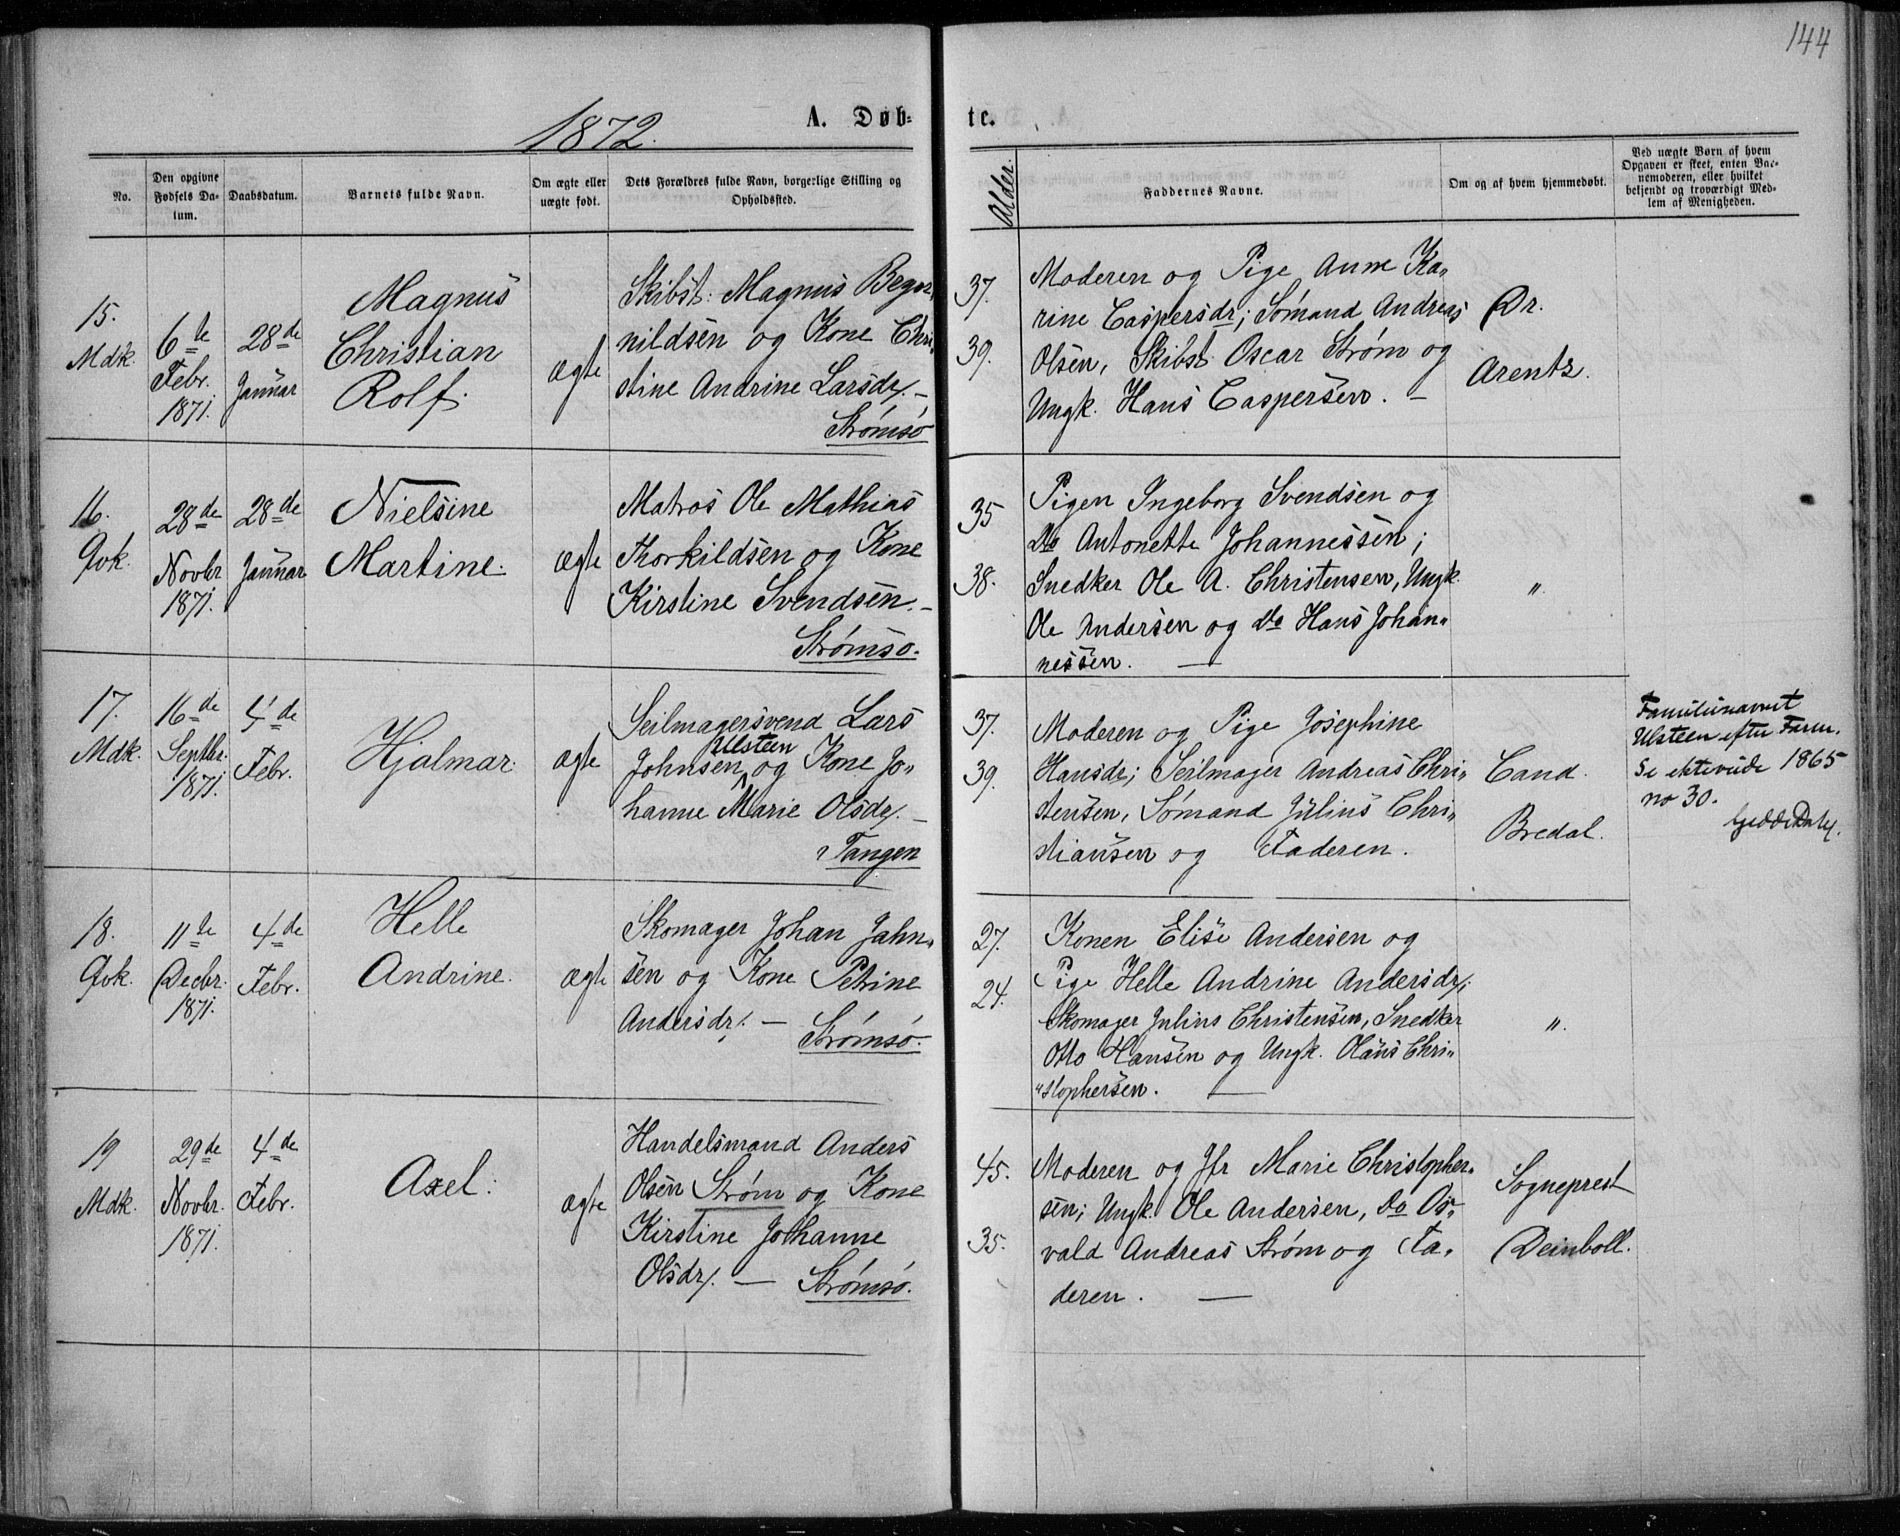 144
1872.
A. Døb-
te.
No.
Den opgivne
Fødsels Da-
tum.
Daabsdatum.
Barnets fulde Navn.
Om ægte eller
uægte født.
Dets Forældres fulde Navn, borgerlige Stilling og
Opholdssted.
Alder.
Faddernes Navne.
Om og af hvem hjemmedøbt.
Ved uægte Børn af hvem
Opgaven er skeet, enten Bar-
nemoderen, eller hvilket
bekjendt og troværdigt Med-
lem af Menigheden.
15.
Mdk.
6te
Febr.
1871.
28de
Januar
Magnus
Christian
Rolf.
ægte
Skibst: Magnus Begn-
nildsen og Kone Chri-
stine Andrine Larsdr. —
Strømsø
37.
39.
Moderen og Pige Anne Ka-
rine Caspersdr; Sømand Andreas
Olsen, Skibst. Oscar Strøm og
Ungk. Hans Caspersen. —
Dr.
Arentz.
16.
Qvk.
28de
Novbr
1871.
28de
Januar
Nielsine
Martine.
ægte
Matros Ole Mathias
Thorkildsen og Kone
Kirstine Svendsen. —
Strømsø.
35
38.
Pigen Ingeborg Svendsen og
Do Antonette Johannessen;
Snedker Ole A. Christensen, Ungk.
Ole Andersen og Do Hans Johan-
nessen. —
"
17.
Mdk.
16de
Septbr.
1871.
4de
Febr.
Hjalmar.
ægte
Seilmagersvend Lars
Ulsteen
Johnsen og Kone Jo-
hanne Marie Olsdr. —
Tangen
37.
39.
Moderen og Pige Josephine
Hansdr; Seilmager Andreas Chri-
stensen, Sømand Julius Chri-
stiansen og Faderen.
Cand.
Bredal.
Familienavnet
Ulsteen efter Farm.
Se ektevide 1865
no 30.
18.
Qvk.
11te
Decbr.
1871.
4de
Febr.
Helle
Andrine.
ægte
Skomager Johan Jahn-
sen og Kone Petrine
Andersdr. — Strømsø.
27.
24.
Konen Elise Andersen og
Pige Helle Andrine Andersdr;
Skomager Julius Christensen, Snedker
Otto Hansen og Ungk. Hans Chri-
stophersen. —
"
19
Mdk.
29de
Novbr.
1871.
4de
Febr.
Axel.
ægte
Handelsmand Anders
Olsen Strøm og Kone
Kirstine Johanne
Olsdr. — Strømsø.
45.
35.
Moderen og Jfr Marie Christopher-
sen; Ungk. Ole Andersen, Do Os-
vald Andreas Strøm og Fa-
deren. —
Sogneprest
Deinboll.